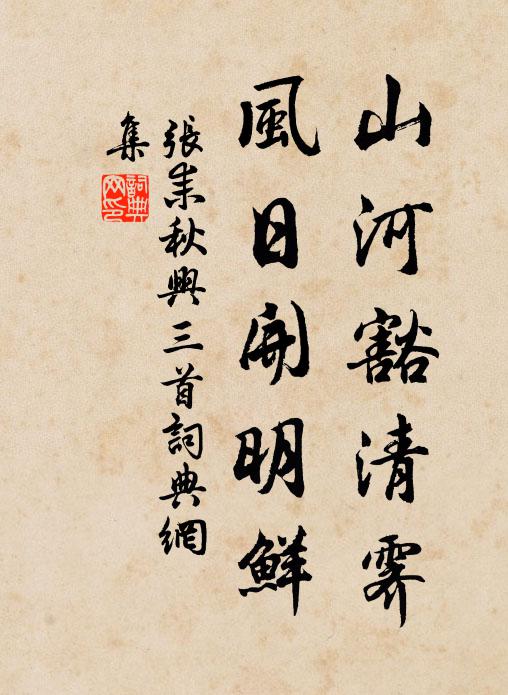 山河豁清霽
風日開明鮮
張耒秋興三首詞典網
集
詞典
网印